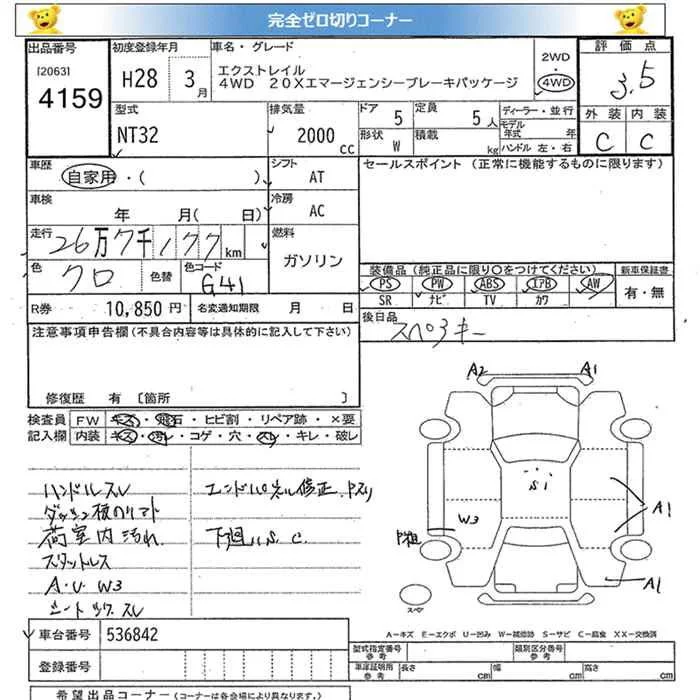 完全ゼロ切りコーナー
出品番号 [2063] 4159
初度登録年月 H28 3月
車名・グレード エクストレイル
4WD 20Xエマージェンシーブレーキパッケージ
2WD・4WD
評価点 3.5
外装 内装
C C
型式 NT32
排気量 2000cc
ドア 5 定員 5人
形状 W 積載 kg
ディーラー・並行
モデル年式 年
ハンドル 左・右
車歴 自家用・( )
シフト AT
セールスポイント (正常に機能するものに限ります)
車検 年 月( 日)
冷房 AC
走行 26万7千177km
燃料 ガソリン
色 クロ 色替 色コード G41
装備品(純正品に限り○をつけてください)
新車保証書
PS PW ABS エアB AW
SR ナビ TV カワ
有・無
R券 10,850円 名変通知期限 月 日
後日品 スペアキー
注意事項申告欄(不具合内容等は具体的に記入して下さい)
修復歴 有 [箇所 ]
検査員記入欄
FW キズ・飛石・ヒビ割・リペア跡・×要
内装 キズ・汚レ・コゲ・穴・スレ・キレ・破レ
ハンドルスレ
荷室内汚れ
スタットレス
A・U W3
下廻りS、C
A2 A1
S1
W3
A1
A1
スペア
A−キズ E−エクボ U−凹み W−補修跡 S−サビ C−腐食 XX−交換済
車台番号 536842
登録番号
型式指定番号 参考
類別区分番号 参考
車庫証明用 参考 長さ cm 幅 cm 高さ cm
希望出品コーナー(コーナーは各会場により異なります)